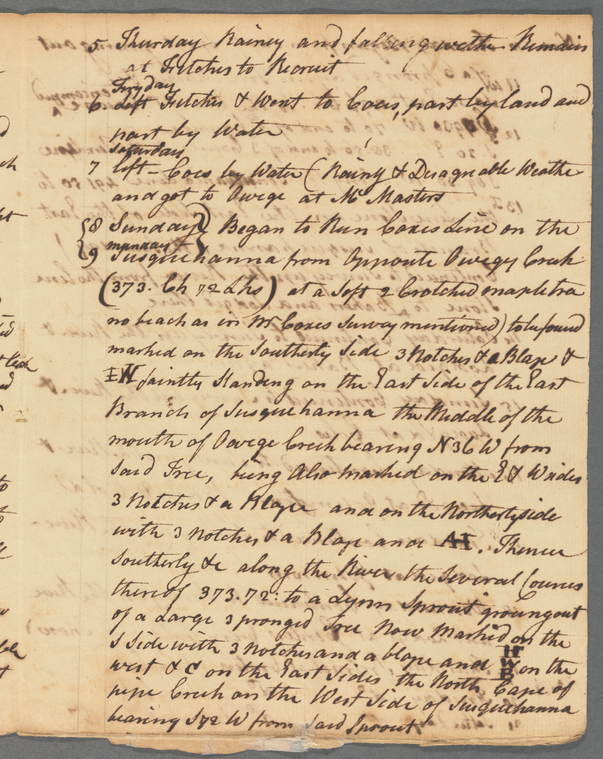 5 Thursday Rainey and falling wether Remain
at Fitches to Recruit
Fryday
6 Left Fitches & Went to Coxes, part by land and
part by Water
Saturday
7 left - Coxes by Water (Rainy & Disagreable Weather
and got to Owege at Mc Masters
8 Sunday } Began to Run Coxes Line on the
monday
9 Susquehanna from Opposite Owegy Creek
(373. Ch 72 Lks) at a Soft 2 Crotched maple tree
no beach as in Mr Coxes Survey mentioned) to be found
marked on the Southerly Side 3 Notches & a Blaze &
IW faintly Standing on the East Side of the East
Branch of Susquehanna the Middle of the
mouth of Owege Creek bearing N 36 W from
Said Tree, being Also marked on the E & W sides
3 Notches & a Blaze and on the Northerly side
with 3 notches & a Blaze and AH. Thence
Southerly &c along the River the Several Courses
thereof 373.72: to a Lynn Sprout groung out
of a Large 3 pronged Tree Now Marked on the
S Side with 3 Notches and a blaze and
H
W
B
on the
west & C on the East Sides the North Cape of
pipe Creek on the West Side of Susquehanna
bearing S 72 W from Said Sprout